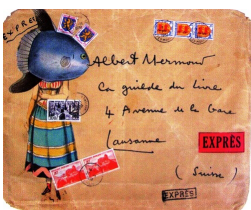 EXPRES
Albert Mermoud
La guilde du Livre
4 Avenue de la Gare
Lausanne
EXPRÈS
(Suisse)
EXPRES